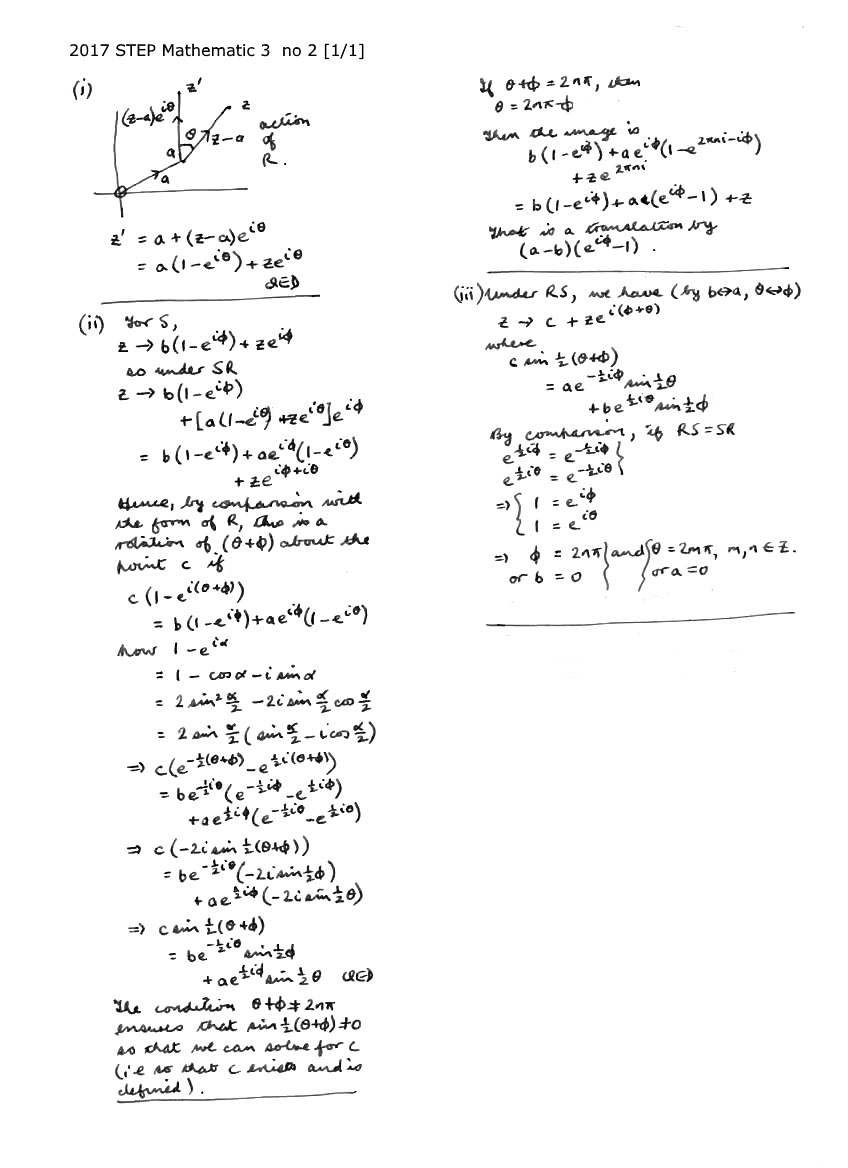 2017 STEP Mathematic 3 no 2 [1/1]
(i)
z'
(z-a)e^{iθ}
z
θ
z-a
a
a
action
of
R.
z' = a + (z-a)e^{iθ}
= a(1-e^{iθ}) + ze^{iθ}
QED
(ii) For S,
z → b(1-e^{iϕ}) + ze^{iϕ}
so under SR
z → b(1-e^{iϕ})
+ [a(1-e^{iθ}) + ze^{iθ}]e^{iϕ}
= b(1-e^{iϕ}) + ae^{iϕ}(1-e^{iθ})
+ ze^{iϕ+iθ}
Hence, by comparison with
the form of R, this is a
rotation of (θ+ϕ) about the
point c if
c(1-e^{i(θ+ϕ)})
= b(1-e^{iϕ}) + ae^{iϕ}(1-e^{iθ})
Now 1-e^{iα}
= 1 - cos α - i sin α
= 2 sin² α/2 - 2i sin α/2 cos α/2
= 2 sin α/2 (sin α/2 - i cos α/2)
⇒ c(e^{-½(θ+ϕ)} - e^{½i(θ+ϕ)})
= be^{-½iθ}(e^{-½iϕ} - e^{½iϕ})
+ ae^{½iϕ}(e^{-½iθ} - e^{½iθ})
⇒ c(-2i sin ½(θ+ϕ))
= be^{-½iθ}(-2i sin ½ϕ)
+ ae^{½iϕ}(-2i sin ½θ)
⇒ c sin ½(θ+ϕ)
= be^{-½iθ} sin ½ϕ
+ ae^{½iϕ} sin ½θ QED
The condition θ+ϕ ≠ 2nπ
ensures that sin ½(θ+ϕ) ≠ 0
so that we can solve for c
(i.e so that c exists and is
defined).
If θ+ϕ = 2nπ, then
θ = 2nπ-ϕ
Then the image is
b(1-e^{iϕ}) + ae^{iϕ}(1-e^{2πni-iϕ})
+ ze^{2πni}
= b(1-e^{iϕ}) + a(e^{iϕ}-1) + z
That is a translation by
(a-b)(e^{iϕ}-1).
(iii) Under RS, we have (by b↔a, θ↔ϕ)
z → c + ze^{i(ϕ+θ)}
where
c sin ½(θ+ϕ)
= ae^{-½iϕ} sin ½θ
+ be^{½iθ} sin ½ϕ
By comparison, if RS = SR
e^{½iϕ} = e^{-½iϕ} }
e^{½iθ} = e^{-½iθ} }
⇒ { 1 = e^{iϕ}
{ 1 = e^{iθ}
⇒ ϕ = 2nπ } and { θ = 2mπ, m,n ∈ Z.
or b = 0 } { or a = 0